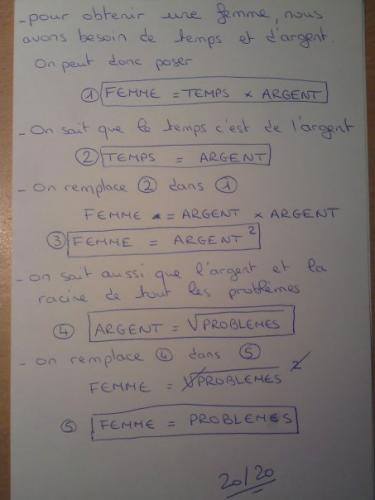 - pour obtenir une femme, nous
avons besoin de temps et d'argent.
On peut donc poser
① FEMME = TEMPS × ARGENT
- On sait que le temps c'est de l'argent
② TEMPS = ARGENT
- On remplace ② dans ①
FEMME = ARGENT × ARGENT
③ FEMME = ARGENT²
- on sait aussi que l'argent et la
racine de tout les problèmes
④ ARGENT = √PROBLEMES
- on remplace ④ dans ⑤
FEMME = √PROBLEMES ²
⑤ FEMME = PROBLEMES
20/20